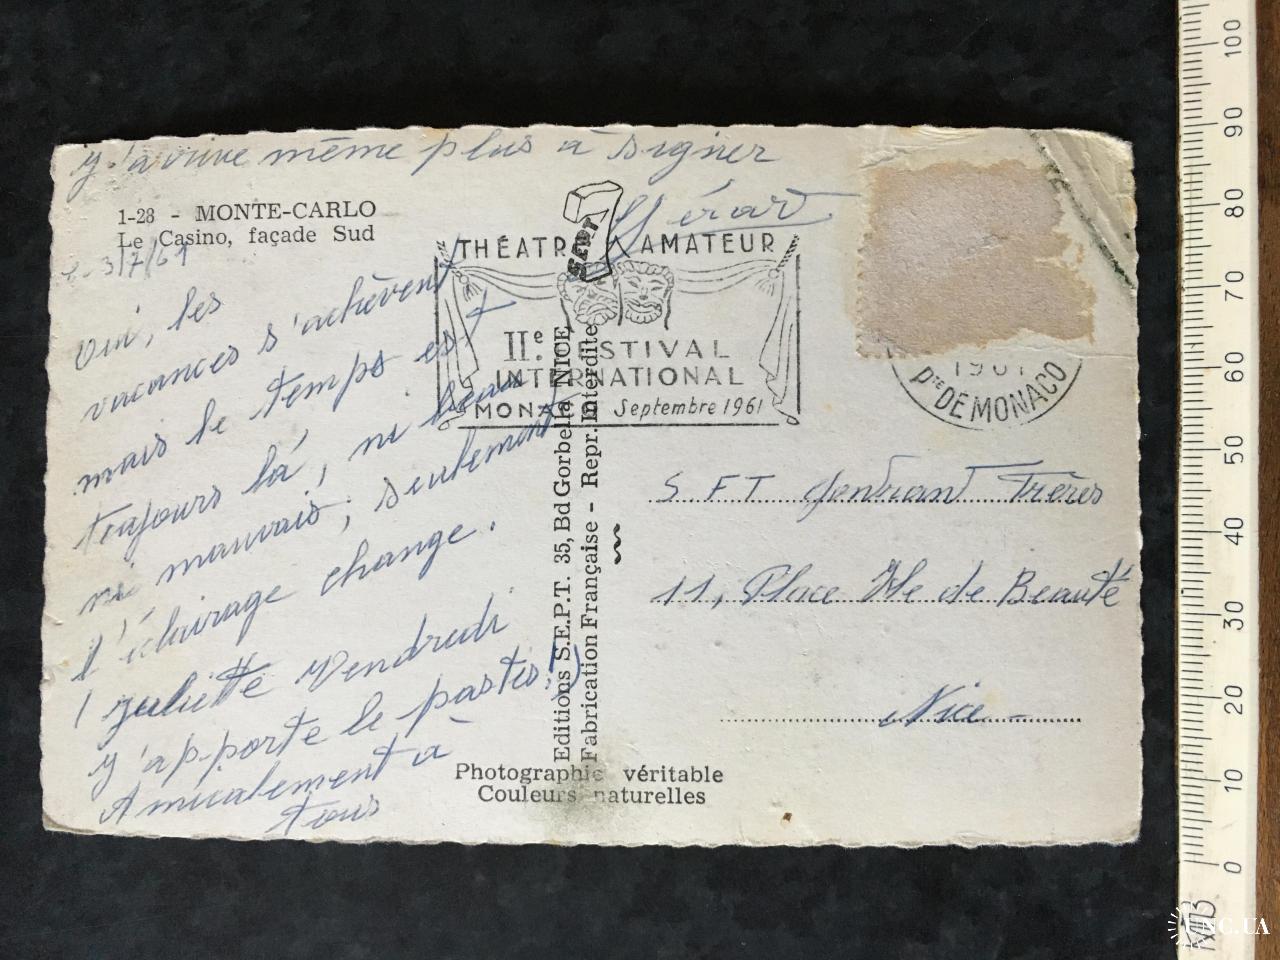 j'arrive même plus à signer
Gérard
1-28 - MONTE-CARLO
Le Casino, façade Sud
3/7/61
Oui, les
vacances s'achèvent
mais le temps est
toujours là, ni beau
ni mauvais; seulement
l'éclairage change.
Juliette Vendredi
j'apporte le pastis!)
Amicalement à
tous
THÉATRE AMATEUR
SEPT
IIe. FESTIVAL
INTERNATIONAL
MONACO Septembre 1961
Editions S.E.P.T. 35, Bd Gorbella NICE
Fabrication Française - Repr. Interdite
Photographie véritable
Couleurs naturelles
1961
Pté DE MONACO
S F T Gondrand Frères
11, Place Ile de Beauté
Nice
0 10 20 30 40 50 60 70 80 90 100
UNC.UA